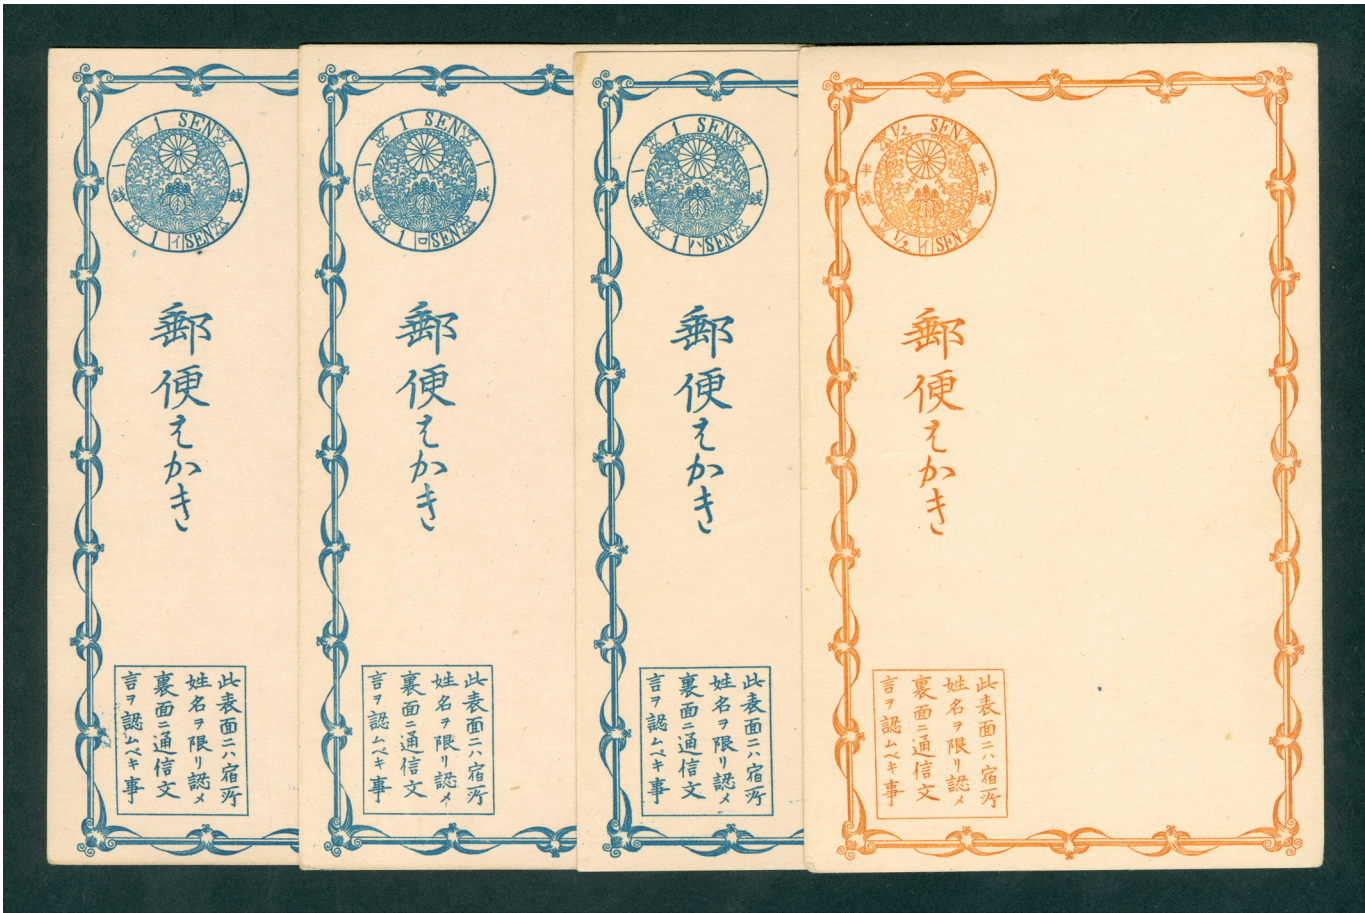 1 SEN
一 一
銭 銭
1 イ SEN
郵便はかき
此表面ニハ宿所
姓名ヲ限リ認メ
裏面ニ通信文
言ヲ認ムベキ事
1 SEN
一 一
銭 銭
1 ロ SEN
郵便はかき
此表面ニハ宿所
姓名ヲ限リ認メ
裏面ニ通信文
言ヲ認ムベキ事
1 SEN
一 一
銭 銭
1 ハ SEN
郵便はかき
此表面ニハ宿所
姓名ヲ限リ認メ
裏面ニ通信文
言ヲ認ムベキ事
1/2 SEN
半 半
銭 銭
1/2 イ SEN
郵便はかき
此表面ニハ宿所
姓名ヲ限リ認メ
裏面ニ通信文
言ヲ認ムベキ事